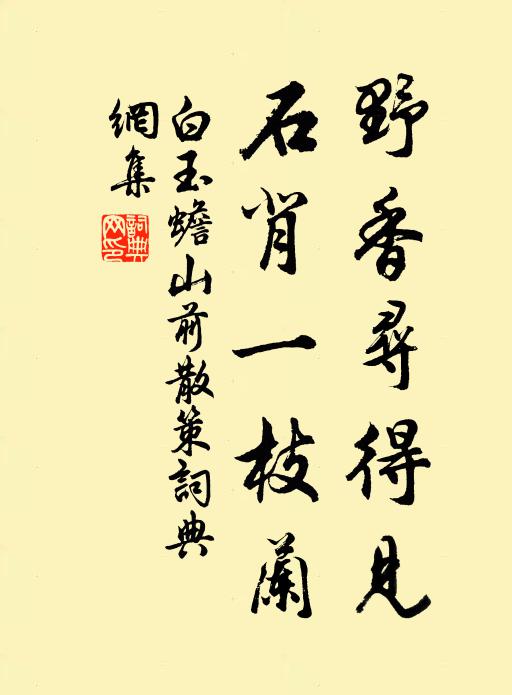 野香尋得見
石背一枝蘭
白玉蟾山前散策詞典
網集
詞典
网印